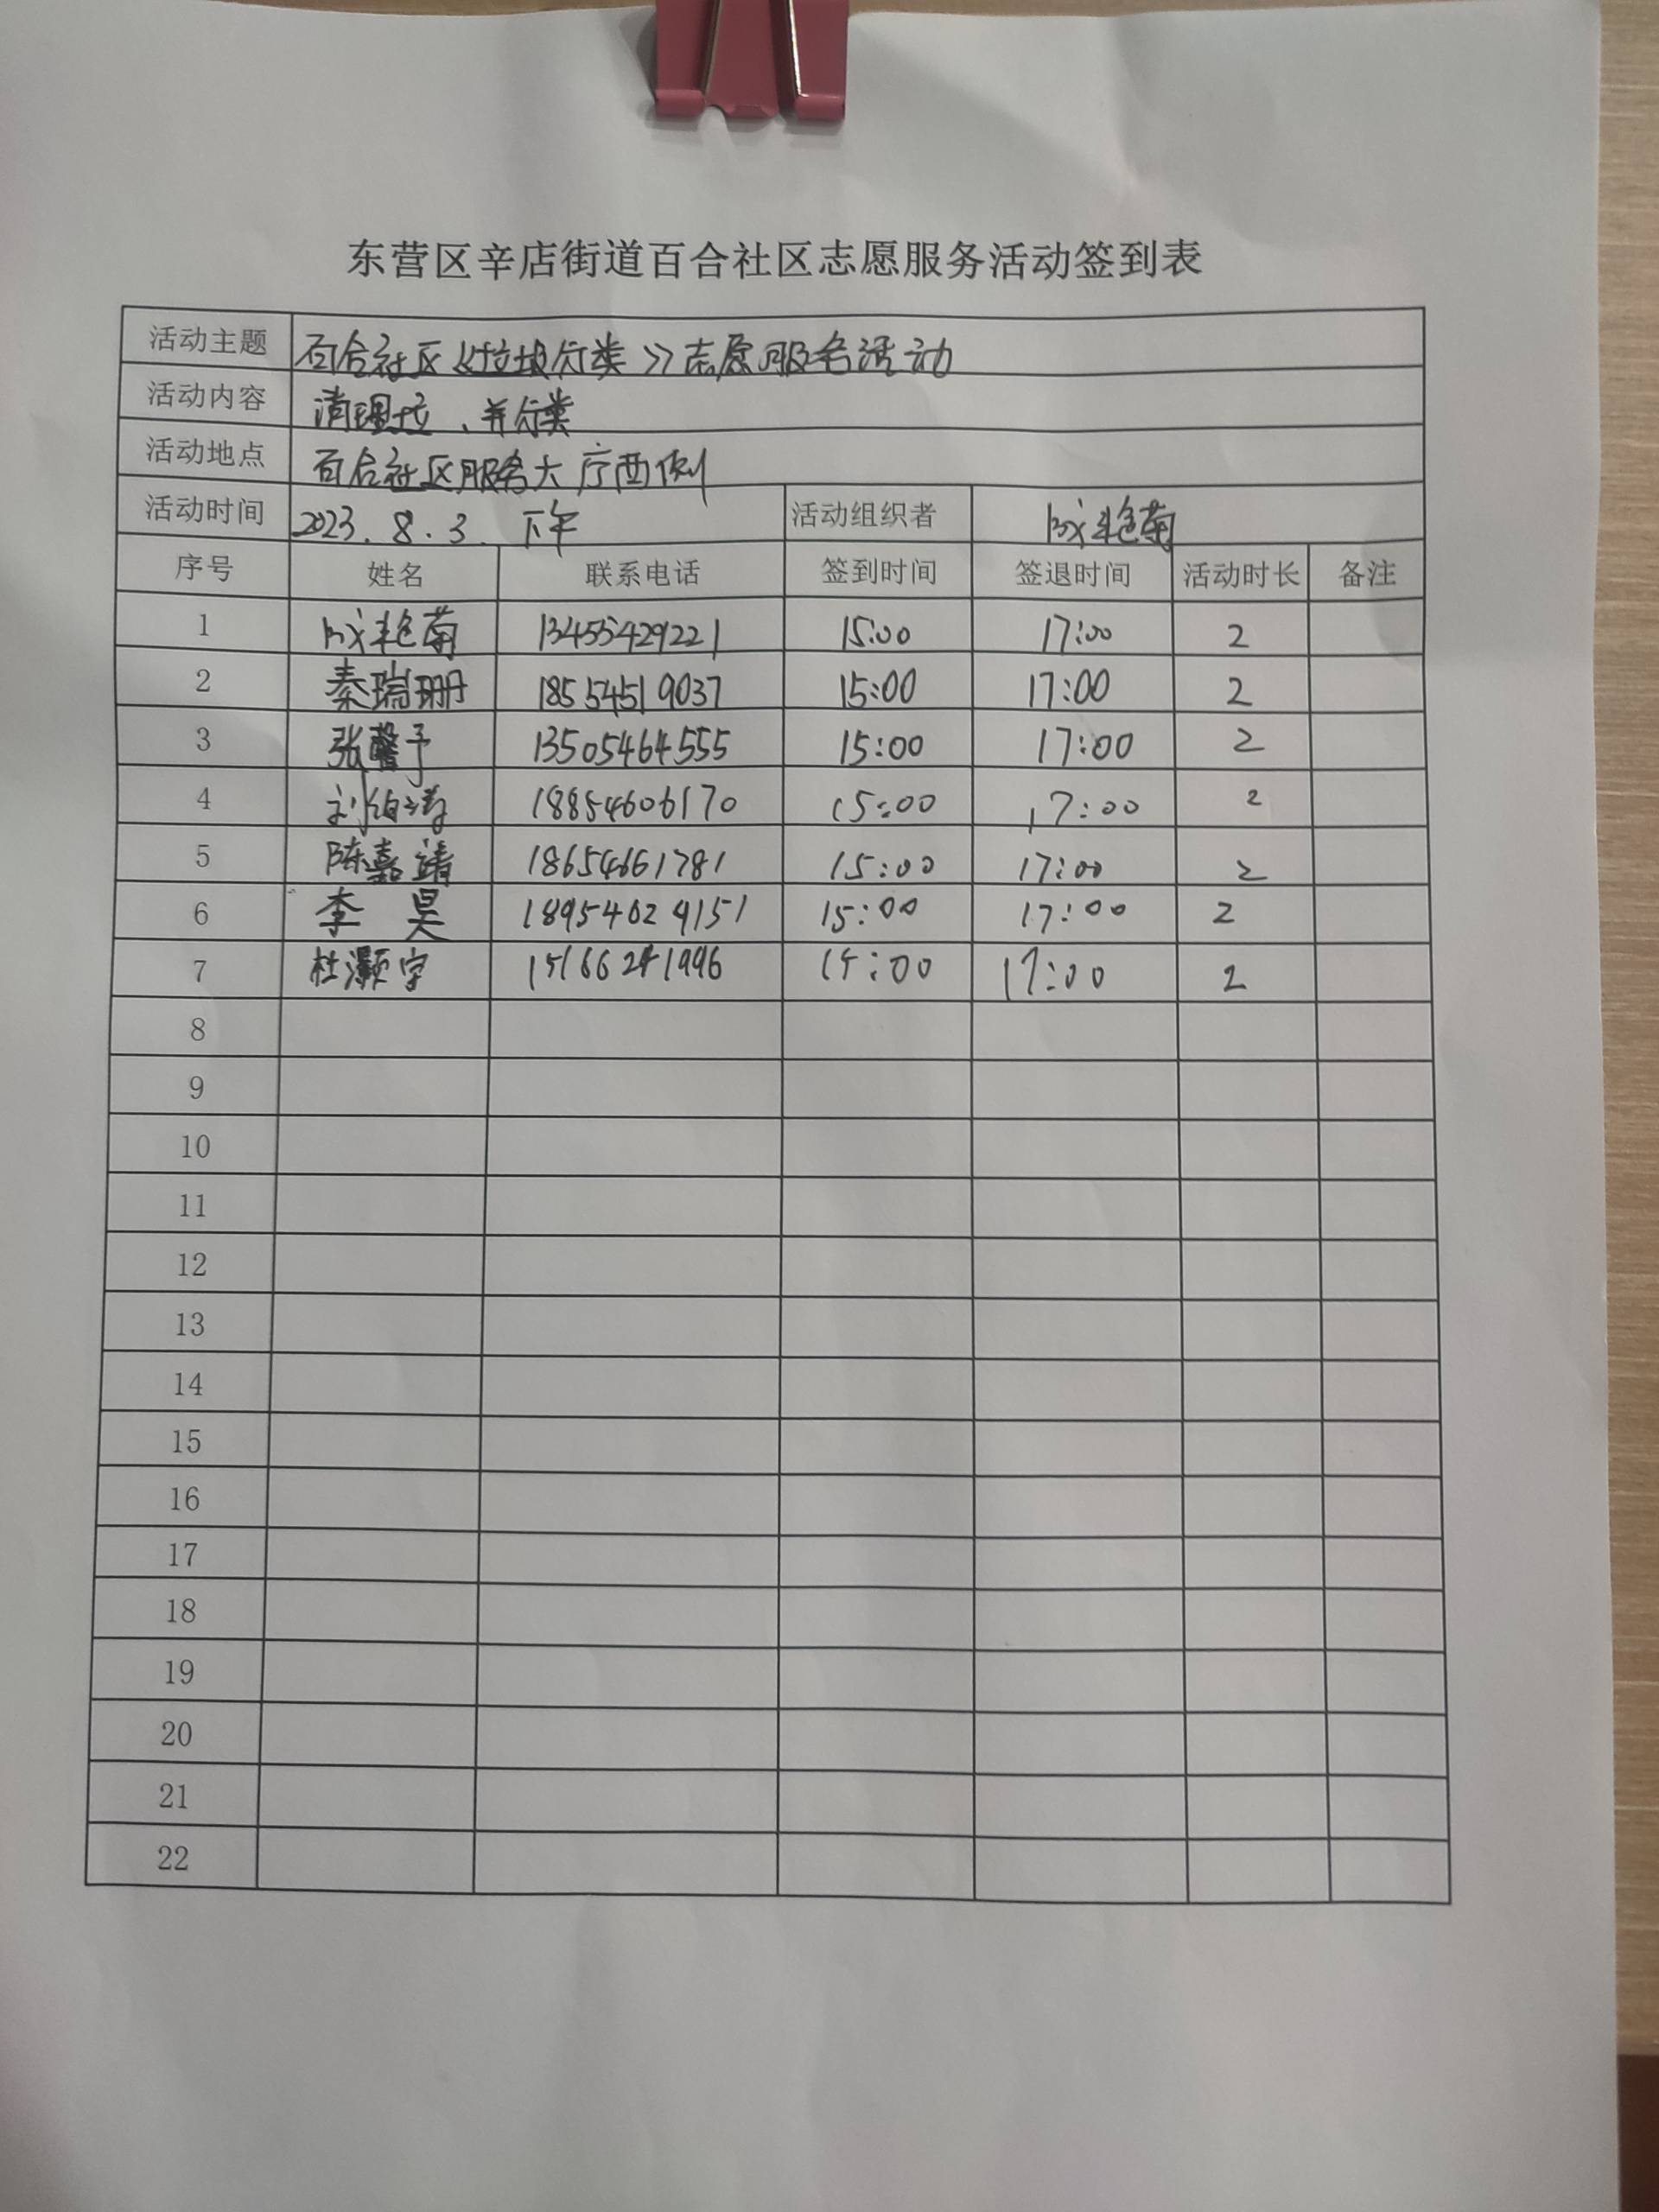 东营区辛店街道百合社区志愿服务活动签到表
活动主题 百合社区《垃圾分类》志愿服务活动
活动内容 清理垃、并分类
活动地点 百合社区服务大厅西侧
活动时间 2023.8.3. 下午 活动组织者 艳菊
序号 姓名 联系电话 签到时间 签退时间 活动时长 备注
1 艳菊 13455429221 15:00 17:00 2
2 秦瑞珊 18554519037 15:00 17:00 2
3 张馨予 13505464555 15:00 17:00 2
4 刘 18854606170 15:00 17:00 2
5 陈嘉靖 18654661781 15:00 17:00 2
6 李昊 18954629151 15:00 17:00 2
7 杜灏宇 15:00 17:00 2
8
9
10
11
12
13
14
15
16
17
18
19
20
21
22